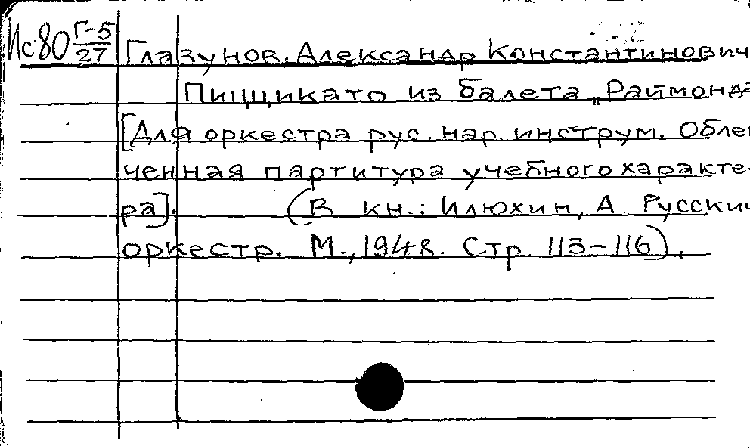 Ис80 Г-5/27 Глазунов, Александр Константинович
Пиццикато из балета „Раймонда
[Для оркестра рус. нар. инструм. Облег
ченная партитура учебного характе-
ра]. (В кн.: Илюхин, А Русский
оркестр. М., 1948. Стр. 115-116).